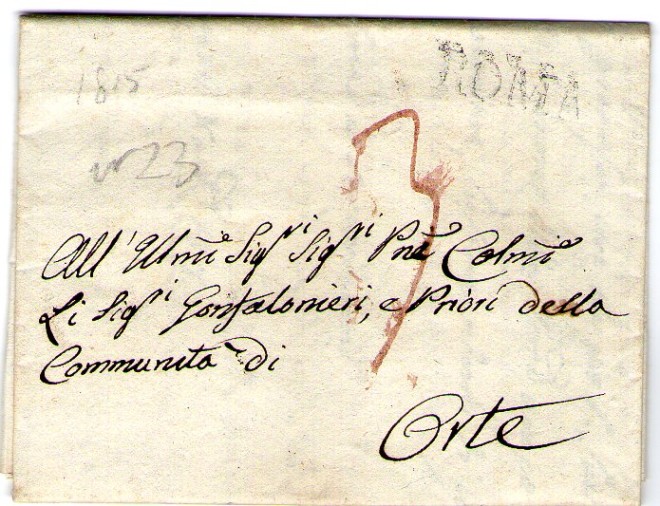 ROMA
1815
23
3
All' Illmi Sigri Sigri Pne Colmi
Li Sigri Gonfalonieri, e Priori della
Communità di
Orte